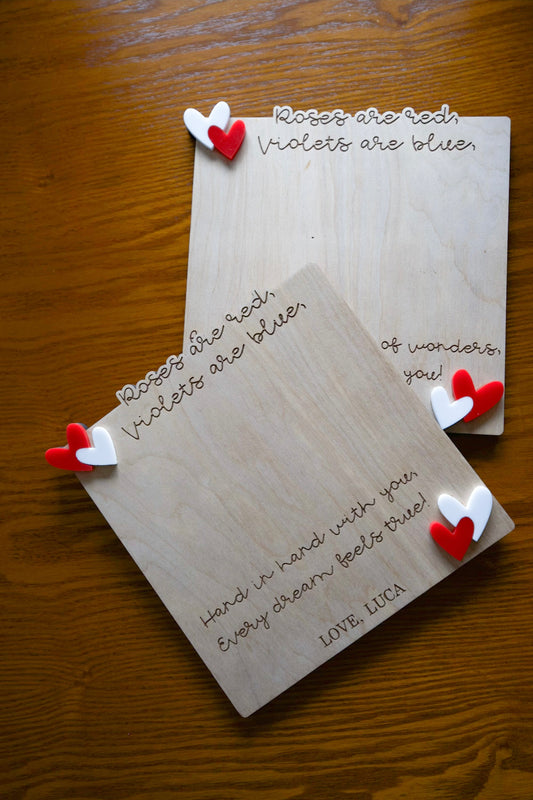 Roses are red,
Violets are blue,
of wonders,
you!
Roses are red,
Violets are blue,
Hand in hand with you,
Every dream feels true!
LOVE, LUCA